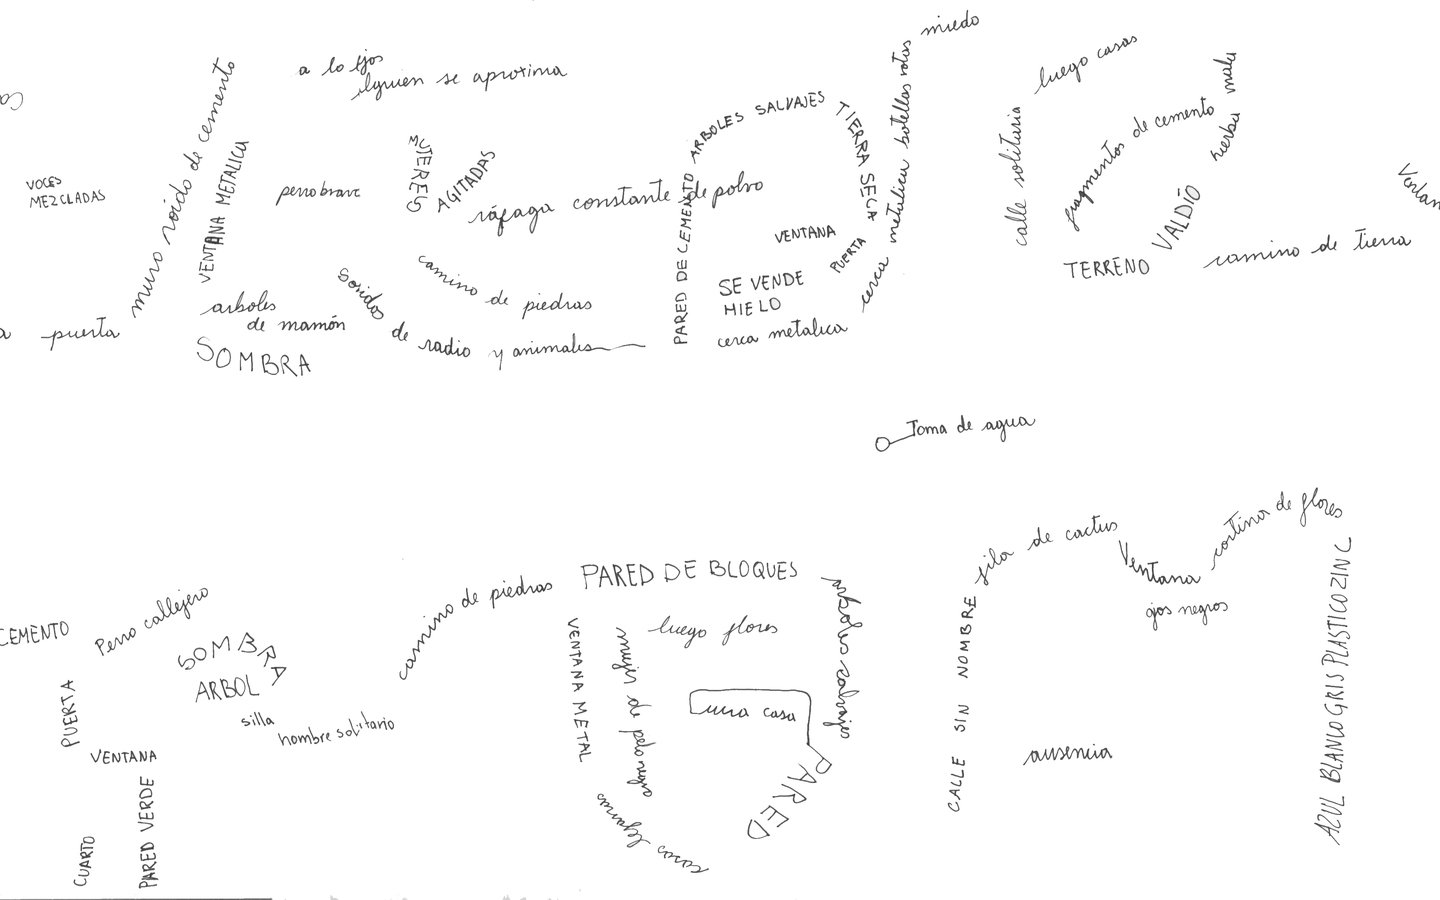 miedo
a lo lejos
alguien se aproxima
luego casas
muro roído de cemento
VENTANA METALICA
VOCES
MEZCLADAS
perro bravo
MUJERES
AGITADAS
ráfaga constante de polvo
PARED DE CEMENTO ARBOLES SALVAJES TIERRA SECA
VENTANA
PUERTA
SE VENDE
HIELO
cerca metalica
cerca metalica botellas rotas
calle solitaria
fragmentos de cemento
hierba mala
TERRENO VALDÍO
camino de tierra
Ventan
puerta
arboles
de mamón
SOMBRA
camino de piedras
sonidos de radio y animales
Toma de agua
CEMENTO
Perro callejero
SOMBRA
ARBOL
silla
hombre solitario
PUERTA
VENTANA
PARED VERDE
CUARTO
camino de piedras
PARED DE BLOQUES
arboles salvajes
VENTANA METAL
luego flores
mujer de pelo negro
una casa
PARED
casas lejanas
CALLE SIN NOMBRE
fila de cactus
Ventana
cortina de flores
ojos negros
ausencia
AZUL BLANCO GRIS PLASTICO ZINC